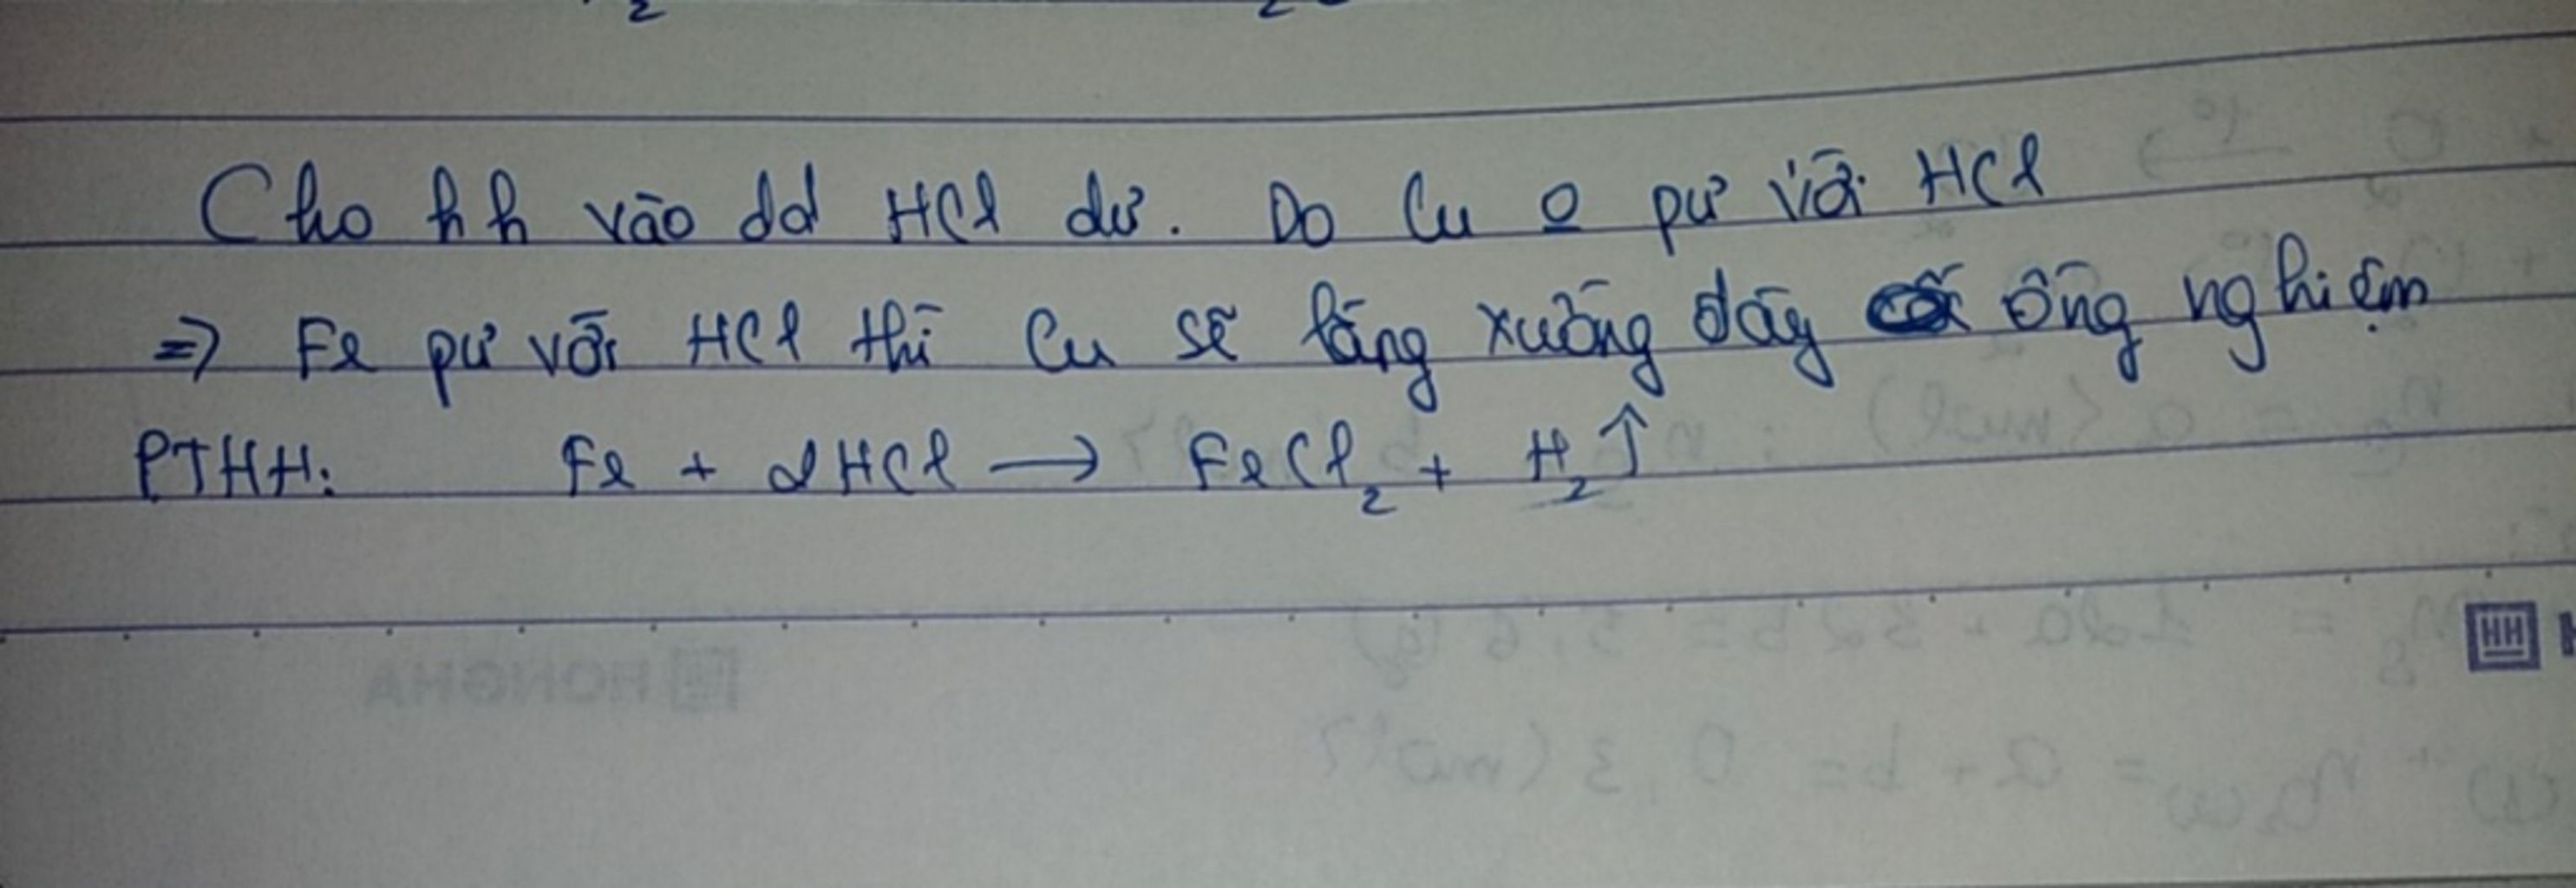 Cho hh vào dd HCl dư. Do Cu o pư với HCl
=> Fe pư với HCl thì Cu sẽ lắng xuống đáy ống nghiệm
PTHH: Fe + 2HCl → FeCl₂ + H₂↑
HH